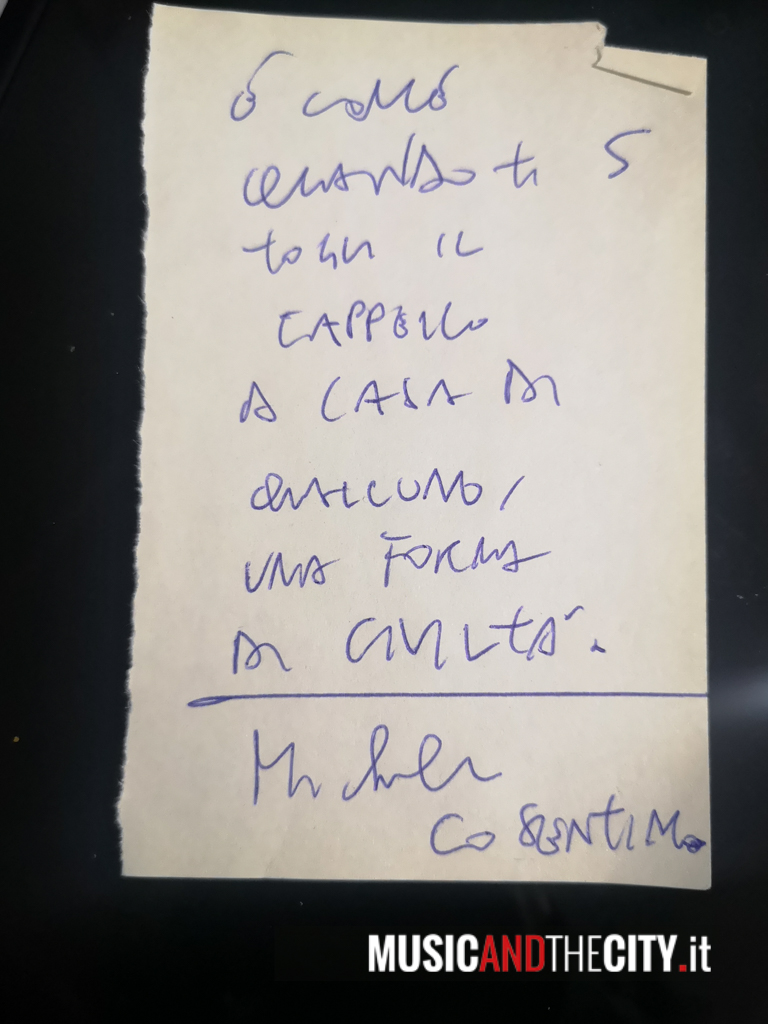 É COME
QUANDO TI 5
TOGLI IL
CAPPELLO
A CASA DI
QUALCUNO,
UNA FORMA
DI CIVILTÁ.
Michele
COSENTINO
MUSICANDTHECITY.it